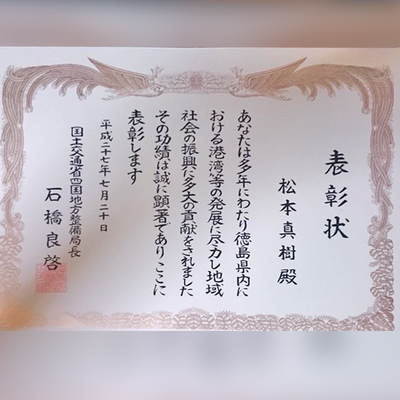 表彰状
松本真樹殿
あなたは多年にわたり徳島県内に
おける港湾等の発展に尽力し地域
社会の振興に多大の貢献をされました
その功績は誠に顕著でありここに
表彰します
平成二十七年七月二十日
国土交通省四国地方整備局長
石橋良啓